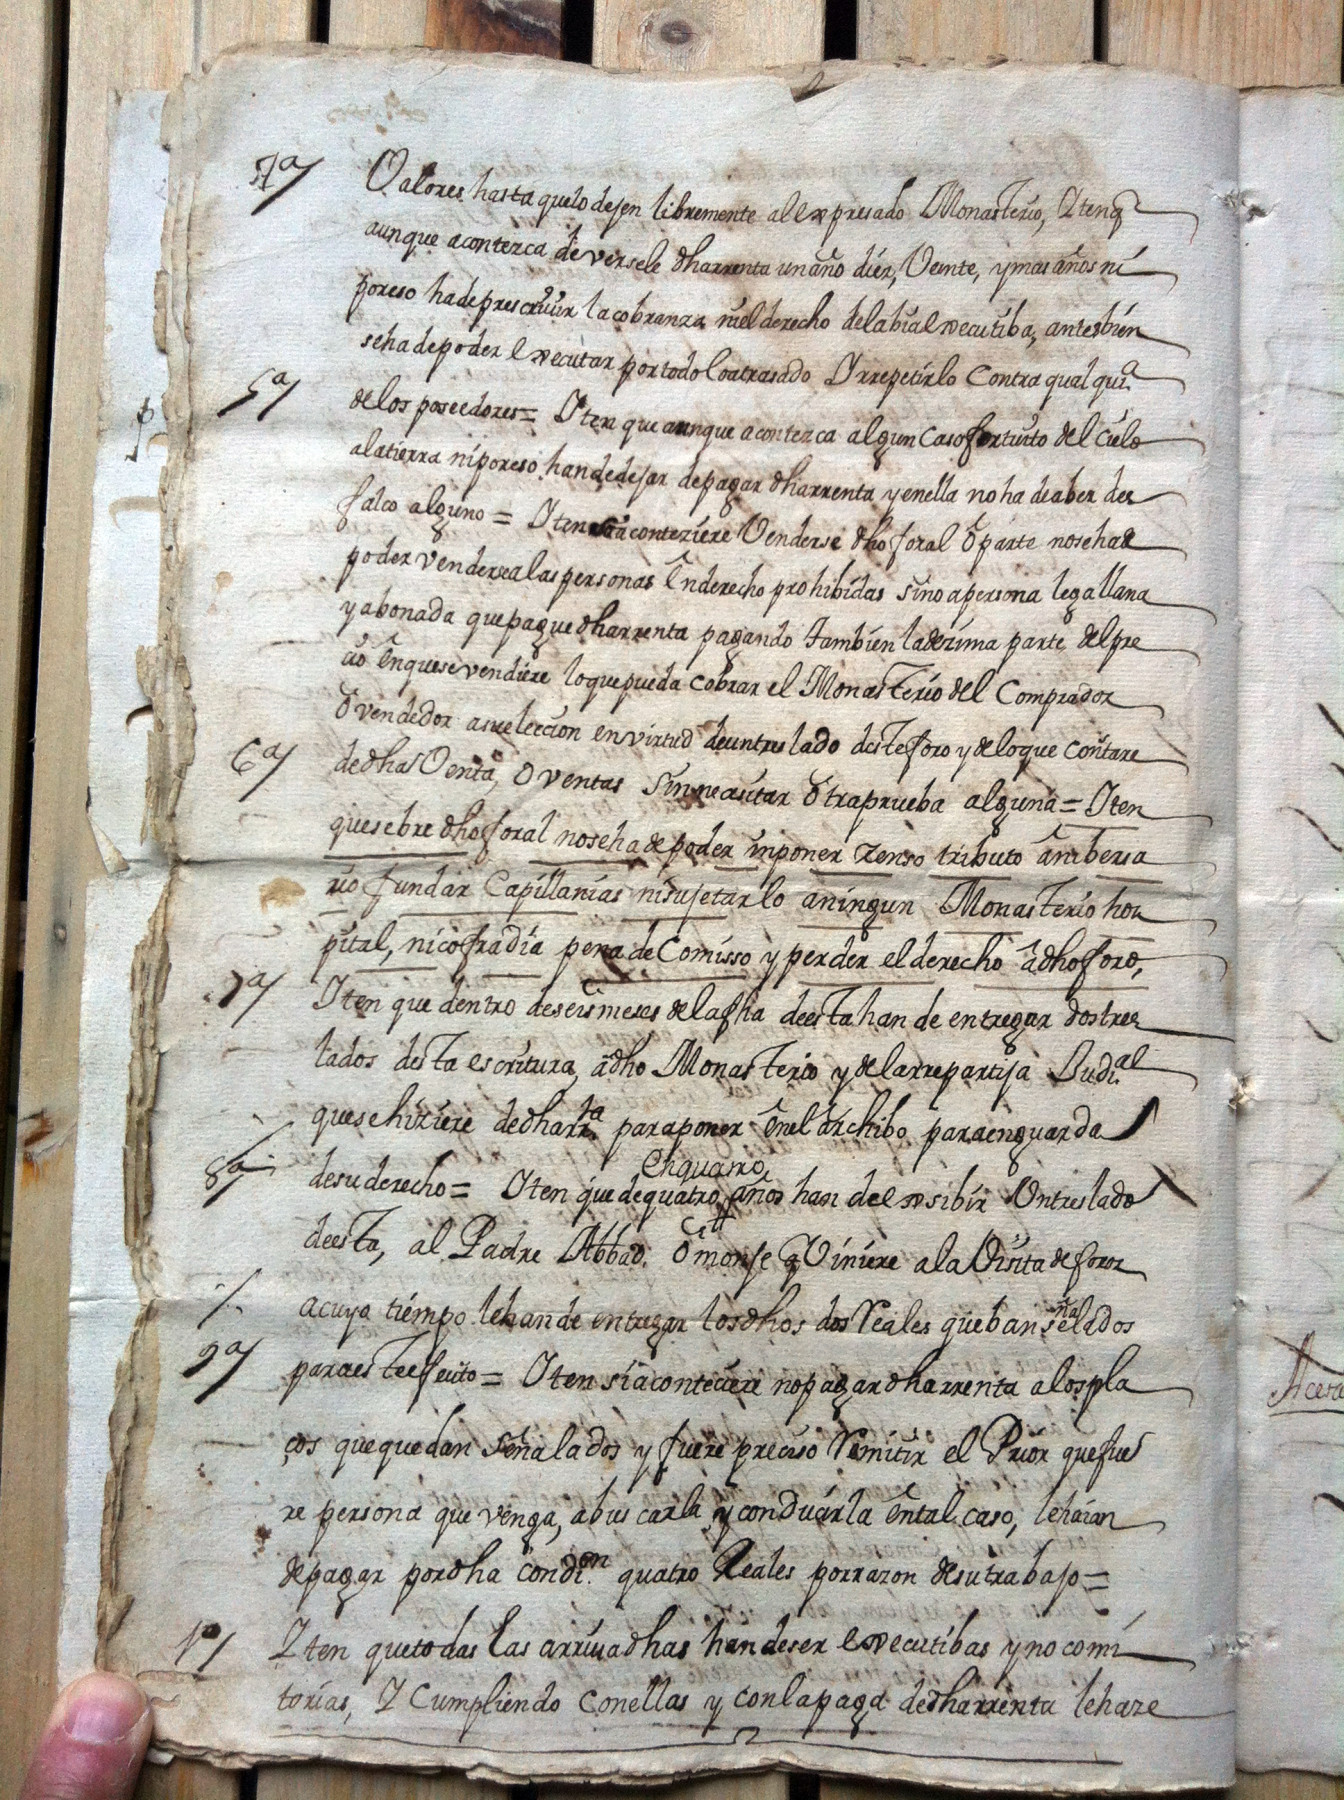 4ª/ Valores hasta quelo dejen libremente al expresado Monasterio, Ytenq
aunque acontezca deversele dharrenta unaño diez, Veinte, ymas años ni
poreso hadeprescrivir lacobranza niel derecho delabia executiba, antesbien
sehadepoder executar portodo loatrasado Yrrepetirlo Contra qualqui.ª
5ª/ delos poseedores= Iten que aunque acontezca algun Casofortuito del cielo
alatierra niporeso handedejar depagar dharrenta yenella noha deaber des
falco alguno = Iten aconteziere Venderse dho foral ô parte nosehade
poder vendersealaspersonas ênderecho prohibidas sino apersona legallana
yabonada quepague dharrenta pagando tambien ladezima parte delpre
cio ênquesevendiere loquepueda cobrar el Monasterio del Comprador
ô vendedor asueleccion envirtud deuntreslado desteforo ydeloque constare
6ª/ dedhas Venta, o ventas Sin necasitar ôtraprueba alguna = Iten
quesobre dho foral noseha de poder inponer zenso tributo âniberia
rio fundar Capillanias nisujetarlo aningun Monasterio hos
pital, nicofradia pena de Comisso y perder el derecho âdhoforo,
7ª/ Iten que dentro deseismeses delafha deesta han de entregar dostres
lados desta escritura, âdho Monasterio y delarrepartija Judi.al
quesehiziere dedharr.ta paraponer ênel ârchibo paraenguarda
8ª/ desuderecho = Iten que dequatro enquatro años han deexsibir Untreslado
deesta, al Padre Abbad. ô monje q Viniere ala Visita deforos
acuyo tiempo lehande entregar losdhos dos Reales queban señalados
9ª/ paraestefecto = Iten siaconteciere nopagar dharrenta alospla
ços quequedan señalados y fuere preciso Remitir el Prior quefue
re persona que venga, abuscarla y conducirla êntal caso, lehaian
depagar pordha Condi.on quatro Reales porrazon desutrabajo=
10/ Iten quetodas las arrivadhas handeser executibas ynocomi
torias, Y Cumpliendo Conellas y conlapaga dedharrenta lehaze